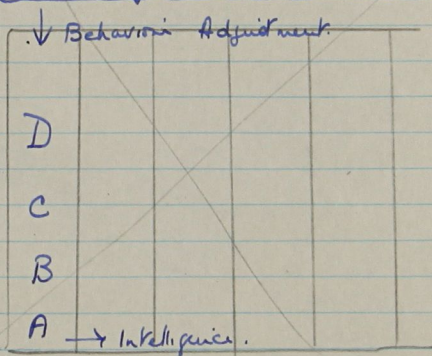 ↓ Behavioris Adjustment.
D
C
B
A → Intelligence.